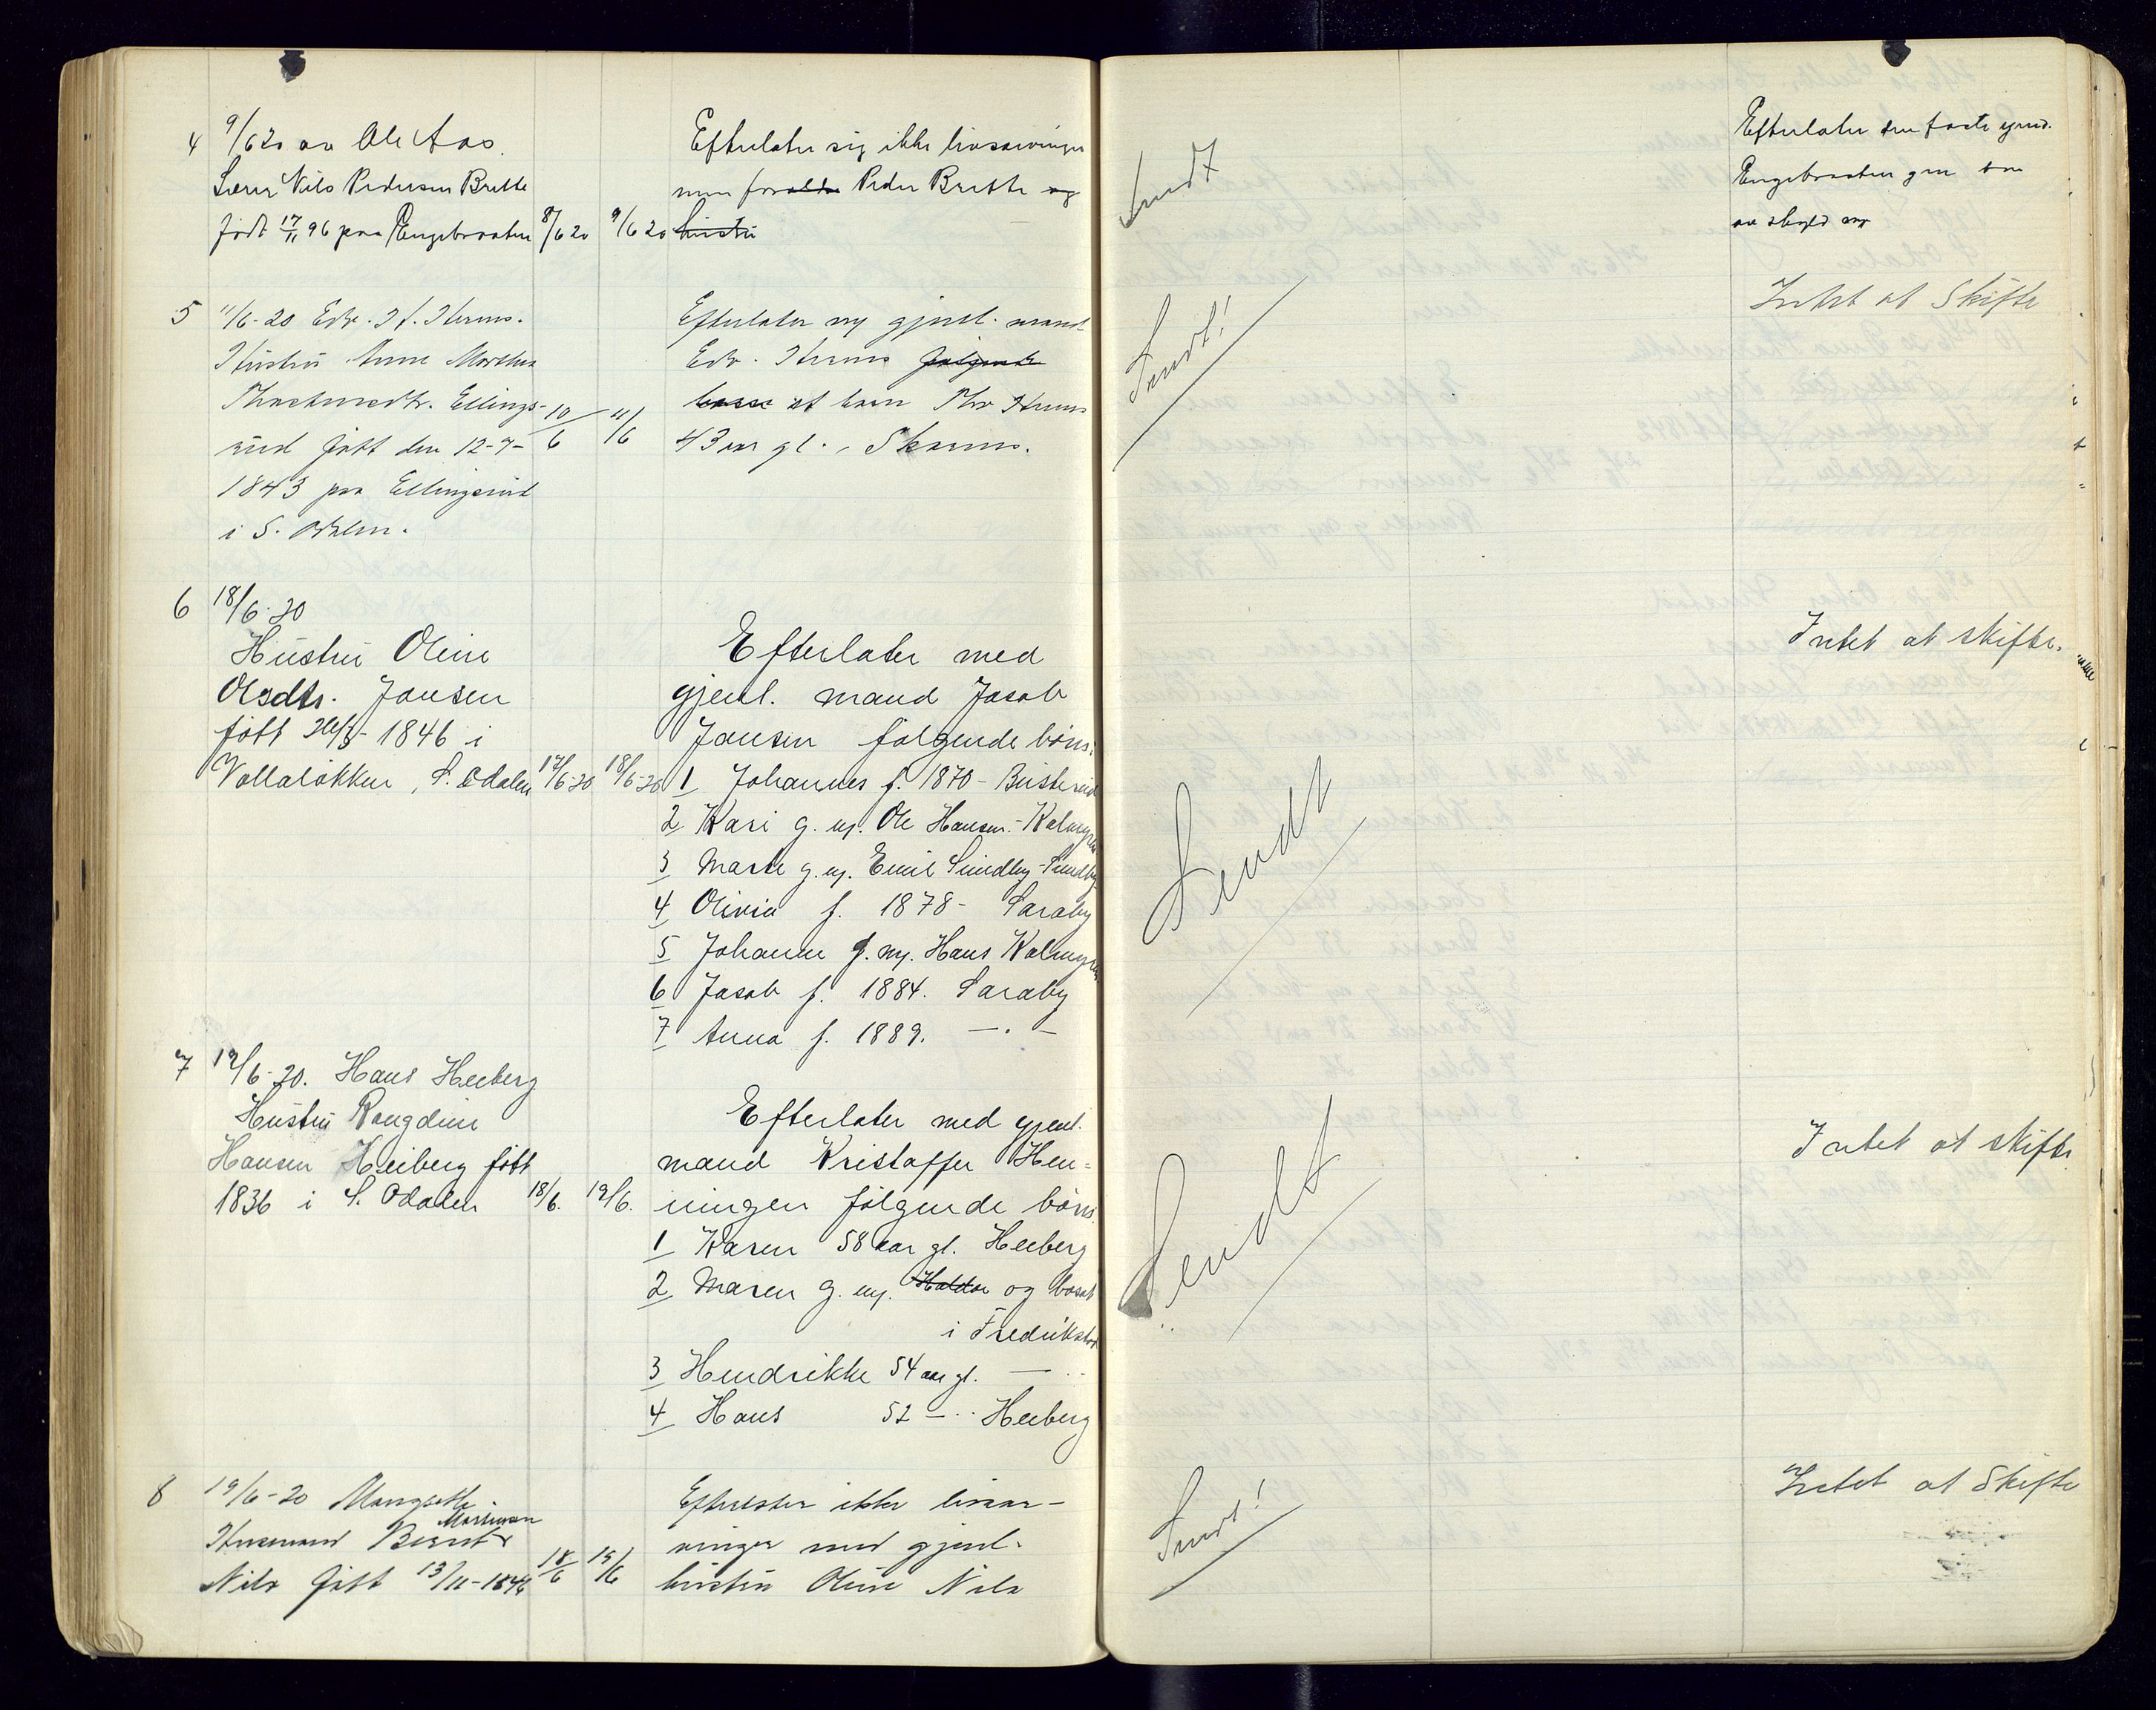 4 9/6 20 av Ole Aas.
Lærer Nils Pedersen Bratte
født 17/11 96 paa Engebraaten 8/6 20 9/6 20
Efterlater sig ikke livsarvinger
men foraldre Peder Bratte og
hustru
Sendt
Efterlater den faste eiend.
Engebraaten gnr
av skyld
5 11/6-20 Edv.
Hustru Anne Marthea
Ellings-
rud født den 12-7- 10/6 11/6
1843 paa Ellingsrud
i S. Odalen.
Efterlater gjenl. mand
Edv. følgende
at barn
43 aar gl.
Sendt!
Intet at Skifte
6 18/6-20
Hustru Oline
Olsdtr. Jansen
født 1846 i
Vollaløkken, S. Odalen 17/6-20 18/6-20
Efterlater med
gjenl. mand Jacob
Jansen følgende børn:
1 Johannes f. 1870 -
2 Kari g. m. Ole Hansen -
3 Marte g. m. Emil Sundby - Sundby
4 Olivia f. 1878 - Saraby
5 Johanne g. m. Hans
6 Jacob f. 1884. Saraby
7 Anna f. 1889. — . —
Sendt
Intet at skifte.
7 19/6-20. Hans Heeberg
Hustru Rangdine
Hansen Heiberg født
1836 i S. Odalen 18/6. 19/6.
Efterlater med gjenl.
mand Kristoffer Hen=
ningen følgende børn.
1 Karen 58 aar gl. Heeberg
2 Maren g. m. og bosat
i Fredrikstad
3 Hendrikke 54 aar gl. —
4 Hans 52 — .. Heeberg
Sendt
Intet at skifte
8 19/6-20
Martinsen
Husmand Bernt
født 13/11-1846 18/6 19/6
Efterlater ikke livsar-
vinger med gjenl.
hustru Oline
Sendt!
Intet at Skifte